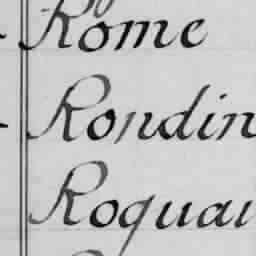 Rome
Rondin
Roquai